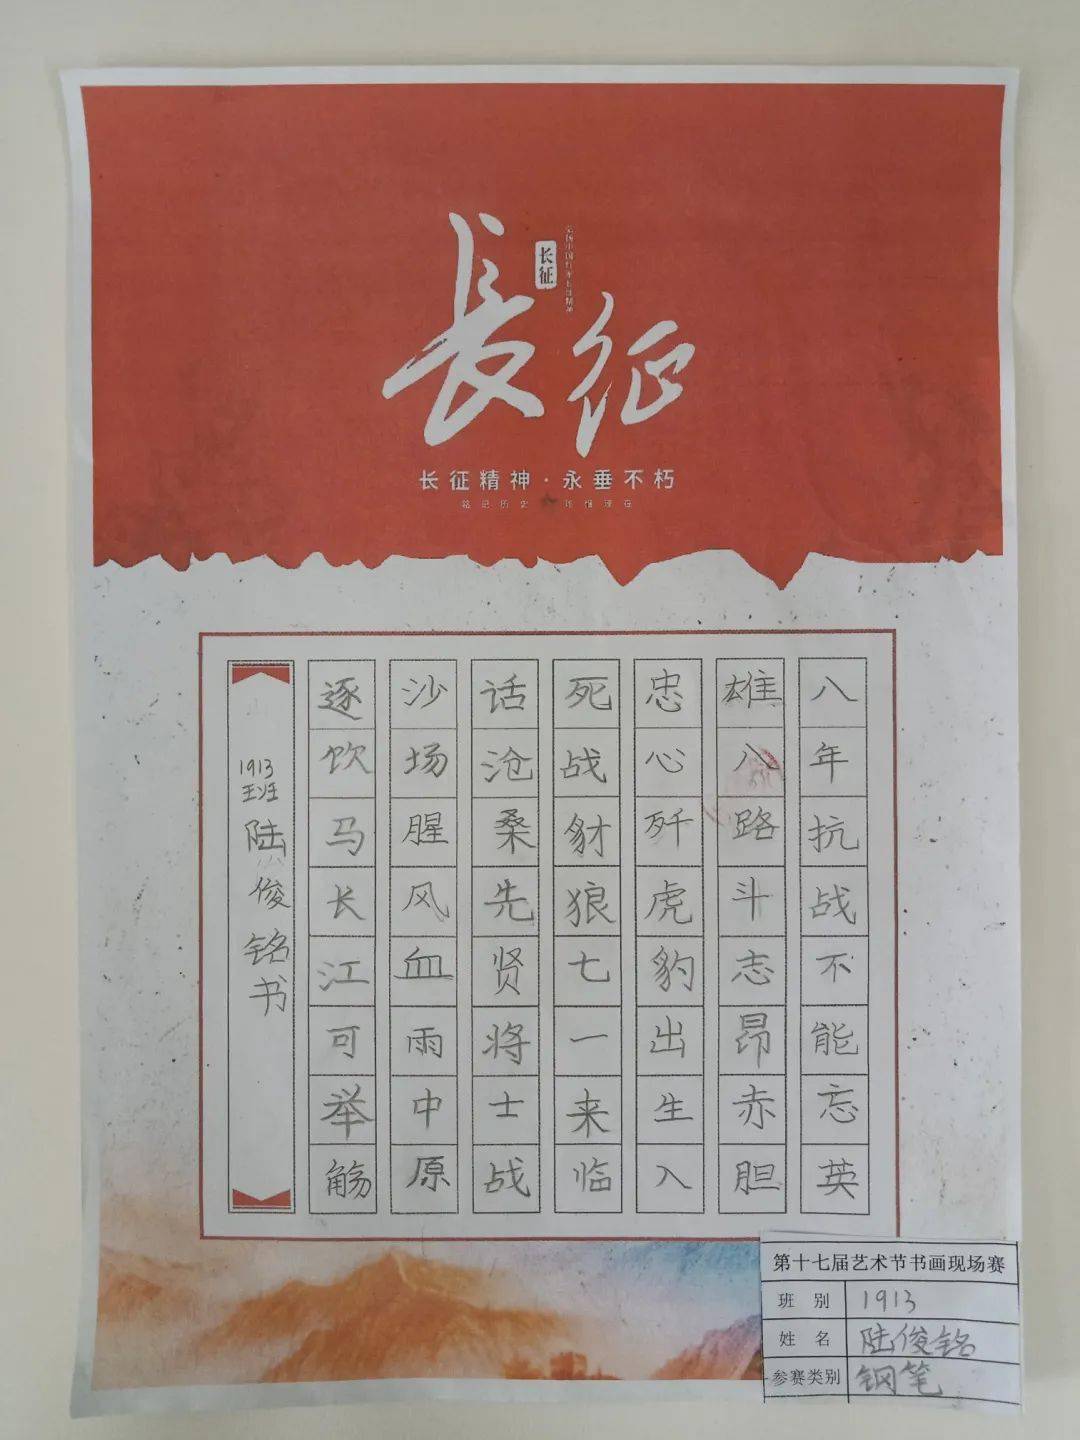 长征
长征
长征精神·永垂不朽
八年抗战不能忘英
雄八路斗志昂赤胆
忠心歼虎豹出生入
死战豺狼七一来临
话沧桑先贤将士战
沙场腥风血雨中原
逐饮马长江可举觞
1913
班
陆俊铭书
第十七届艺术节书画现场赛
班别 1913
姓名 陆俊铭
参赛类别 钢笔